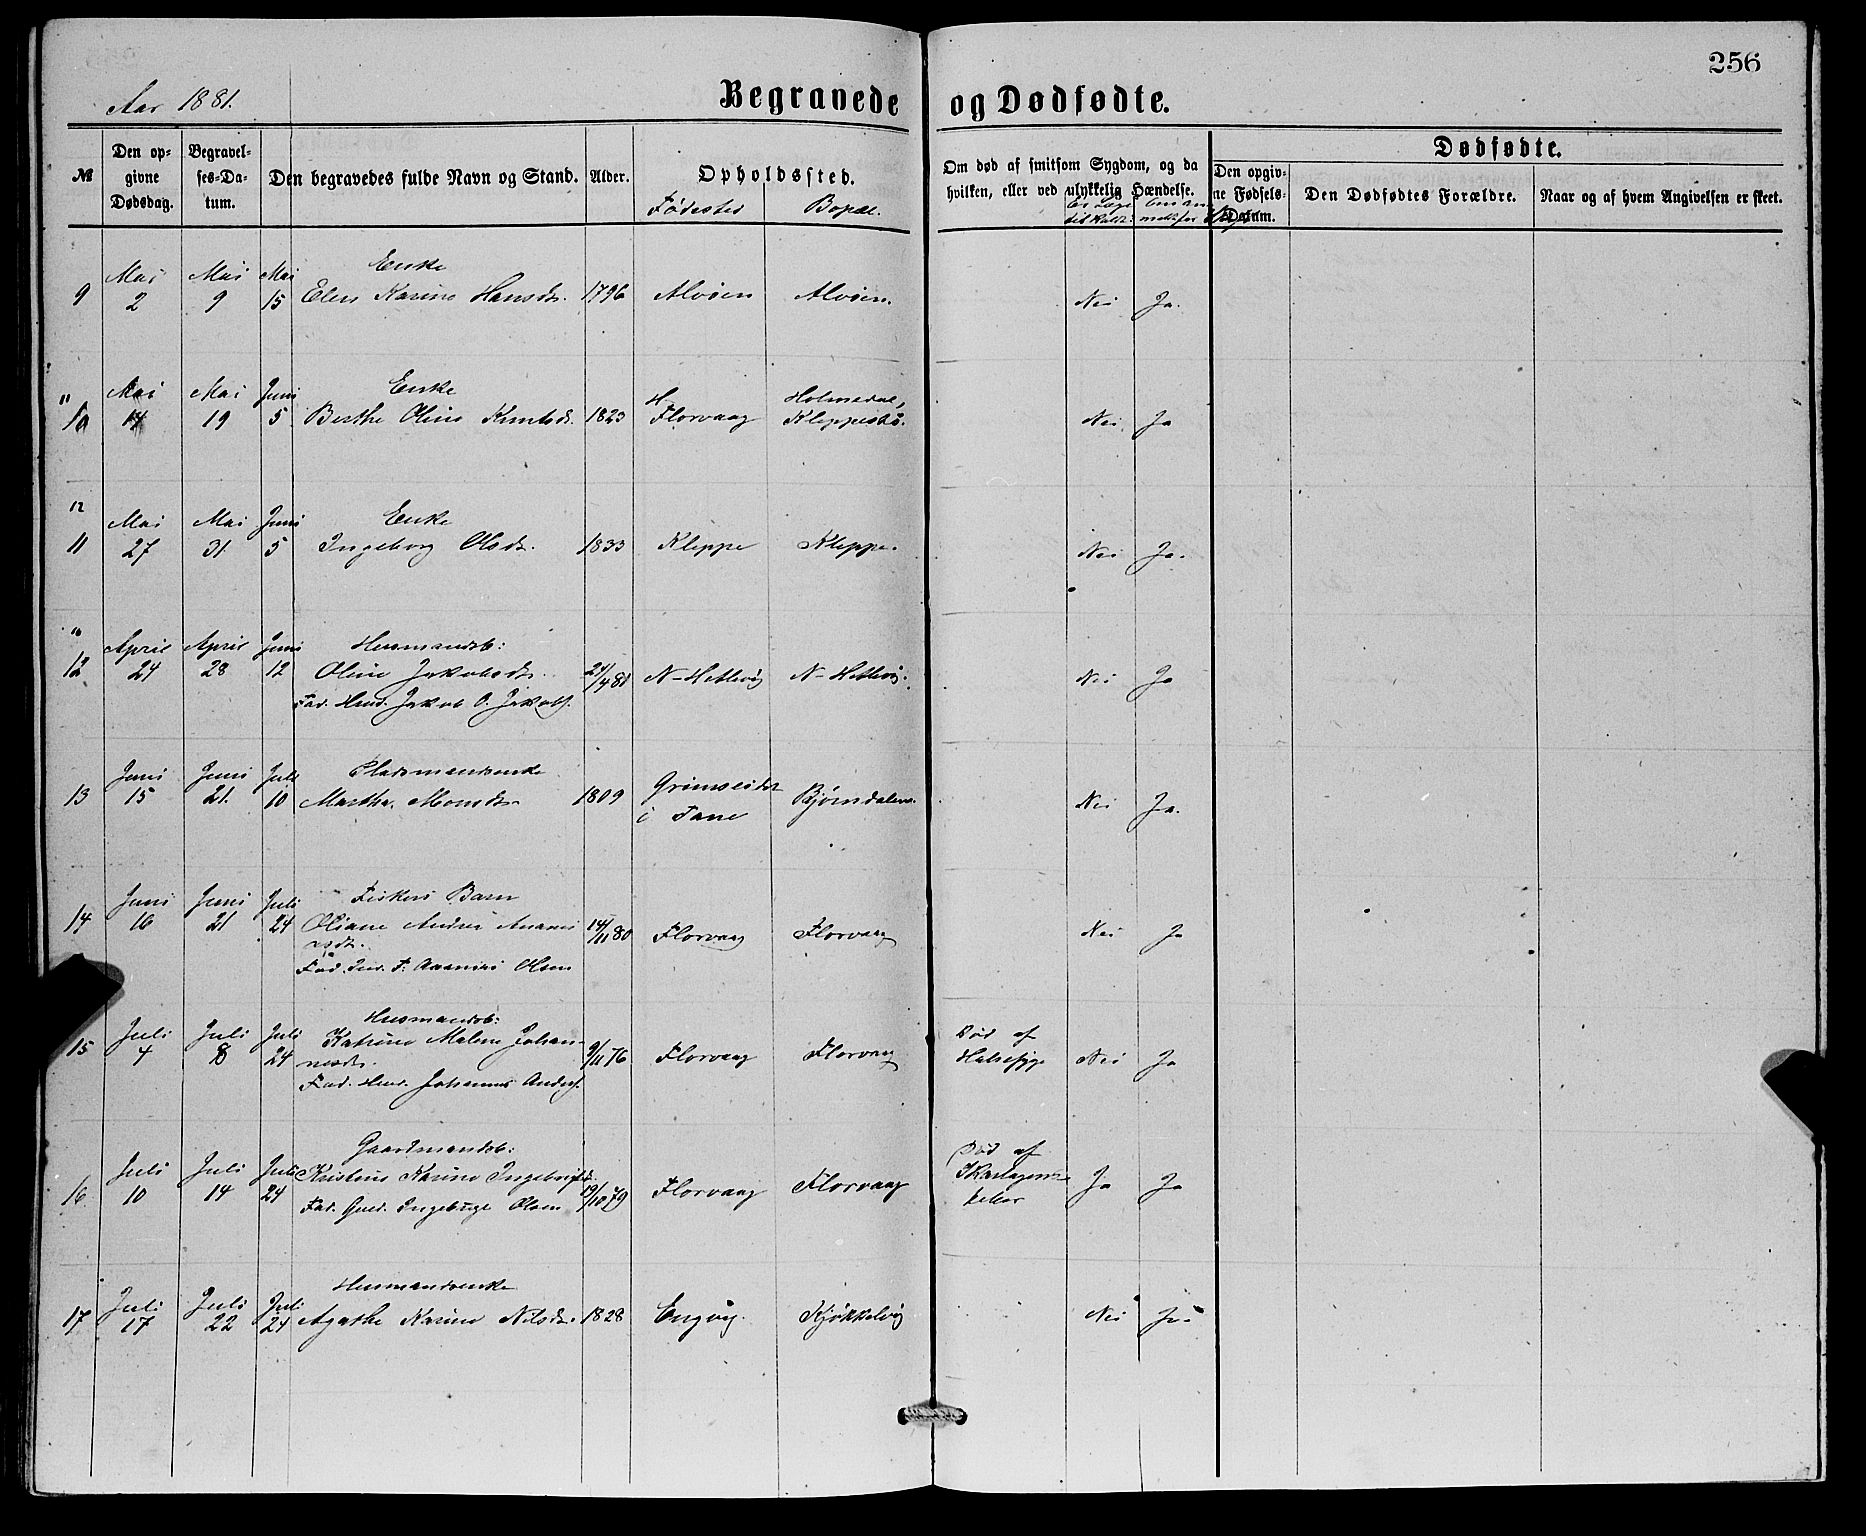 256
Aar 1881.
Begravede og Dødfødte.
№
Den opgivne Dødsdag.
Begravelses-Datum.
Den begravedes fulde Navn og Stand.
Alder.
Opholdssted.
Fødested
Bopæl.
Om død af smitsom Sygdom, og da hvilken, eller ved ulykkelig Hændelse.
Dødfødte.
Den opgivne Fødsels-Datum.
Den Dødfødtes Forældre.
Naar og af hvem Angivelsen er skeet.
Mai Mai Mai Enke
9 2 9 15 Elen Karine Hansdr. 1796 Alvøen Alvøen. Nei Ja.
Mai Mai Juni Enke Holmedal,
10 14 19 5 Berthe Oline Knutsdr. 1823 Florvaag Kleppestø. Nei Ja
12
Mai Mai Juni Enke
11 27 31 5 Ingeborg Olsdr. 1833 Kleppe Kleppe. Nei Ja.
April April Juni Husmandsb:
12 24 28 12 Oline Jakobsdr. 21/4 81 N-Hetlevig N-Hetlevig. Nei Ja
Fad. Husd. Jakob O. Jakobs.
Juni Juni Juli Pladsmandsenke
13 15 21. 10 Marthe Monsdr. 1809 Grimseidet i Fane Bjørndalen. Nei Ja.
Juni Juni Juli Fiskers Barn
14 16 21 24 Oliane Andrea 14/11 80 Florvaag Florvaag Nei Ja
Olsen
Juli Juli Juli Husmandsb:
15 4 8 24 Katrine Malene Johannesdr. 9/11 76 Florvaag Florvaag Død af Halssyge Nei Ja
Fad. Husd. Johannes Anders.
Juli Juli Juli Gaardmandsb:
16 10 14 24 Kristine Karine 19/10 79 Florvaag Florvaag Død af Ja Ja
Fad. Gaard. Ingebrigt Olsen
Juli Juli Juli Husmandsenke
17 17 22 24 Agathe Karine Nilsdr. 1828 Engvig. Kjøkkelvig Nei Ja.